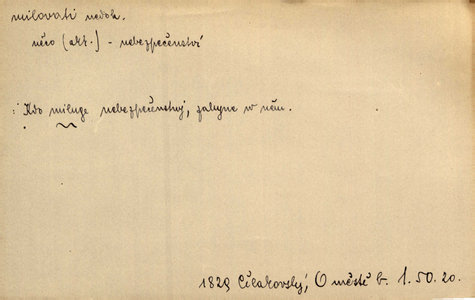 milovati nedok.
něco (akt.) - nebezpečenství
: Kdo miluge nebezpečenstwj, zahyne w něm.
1829 Čelakovský, O městě b. 1.50.20.